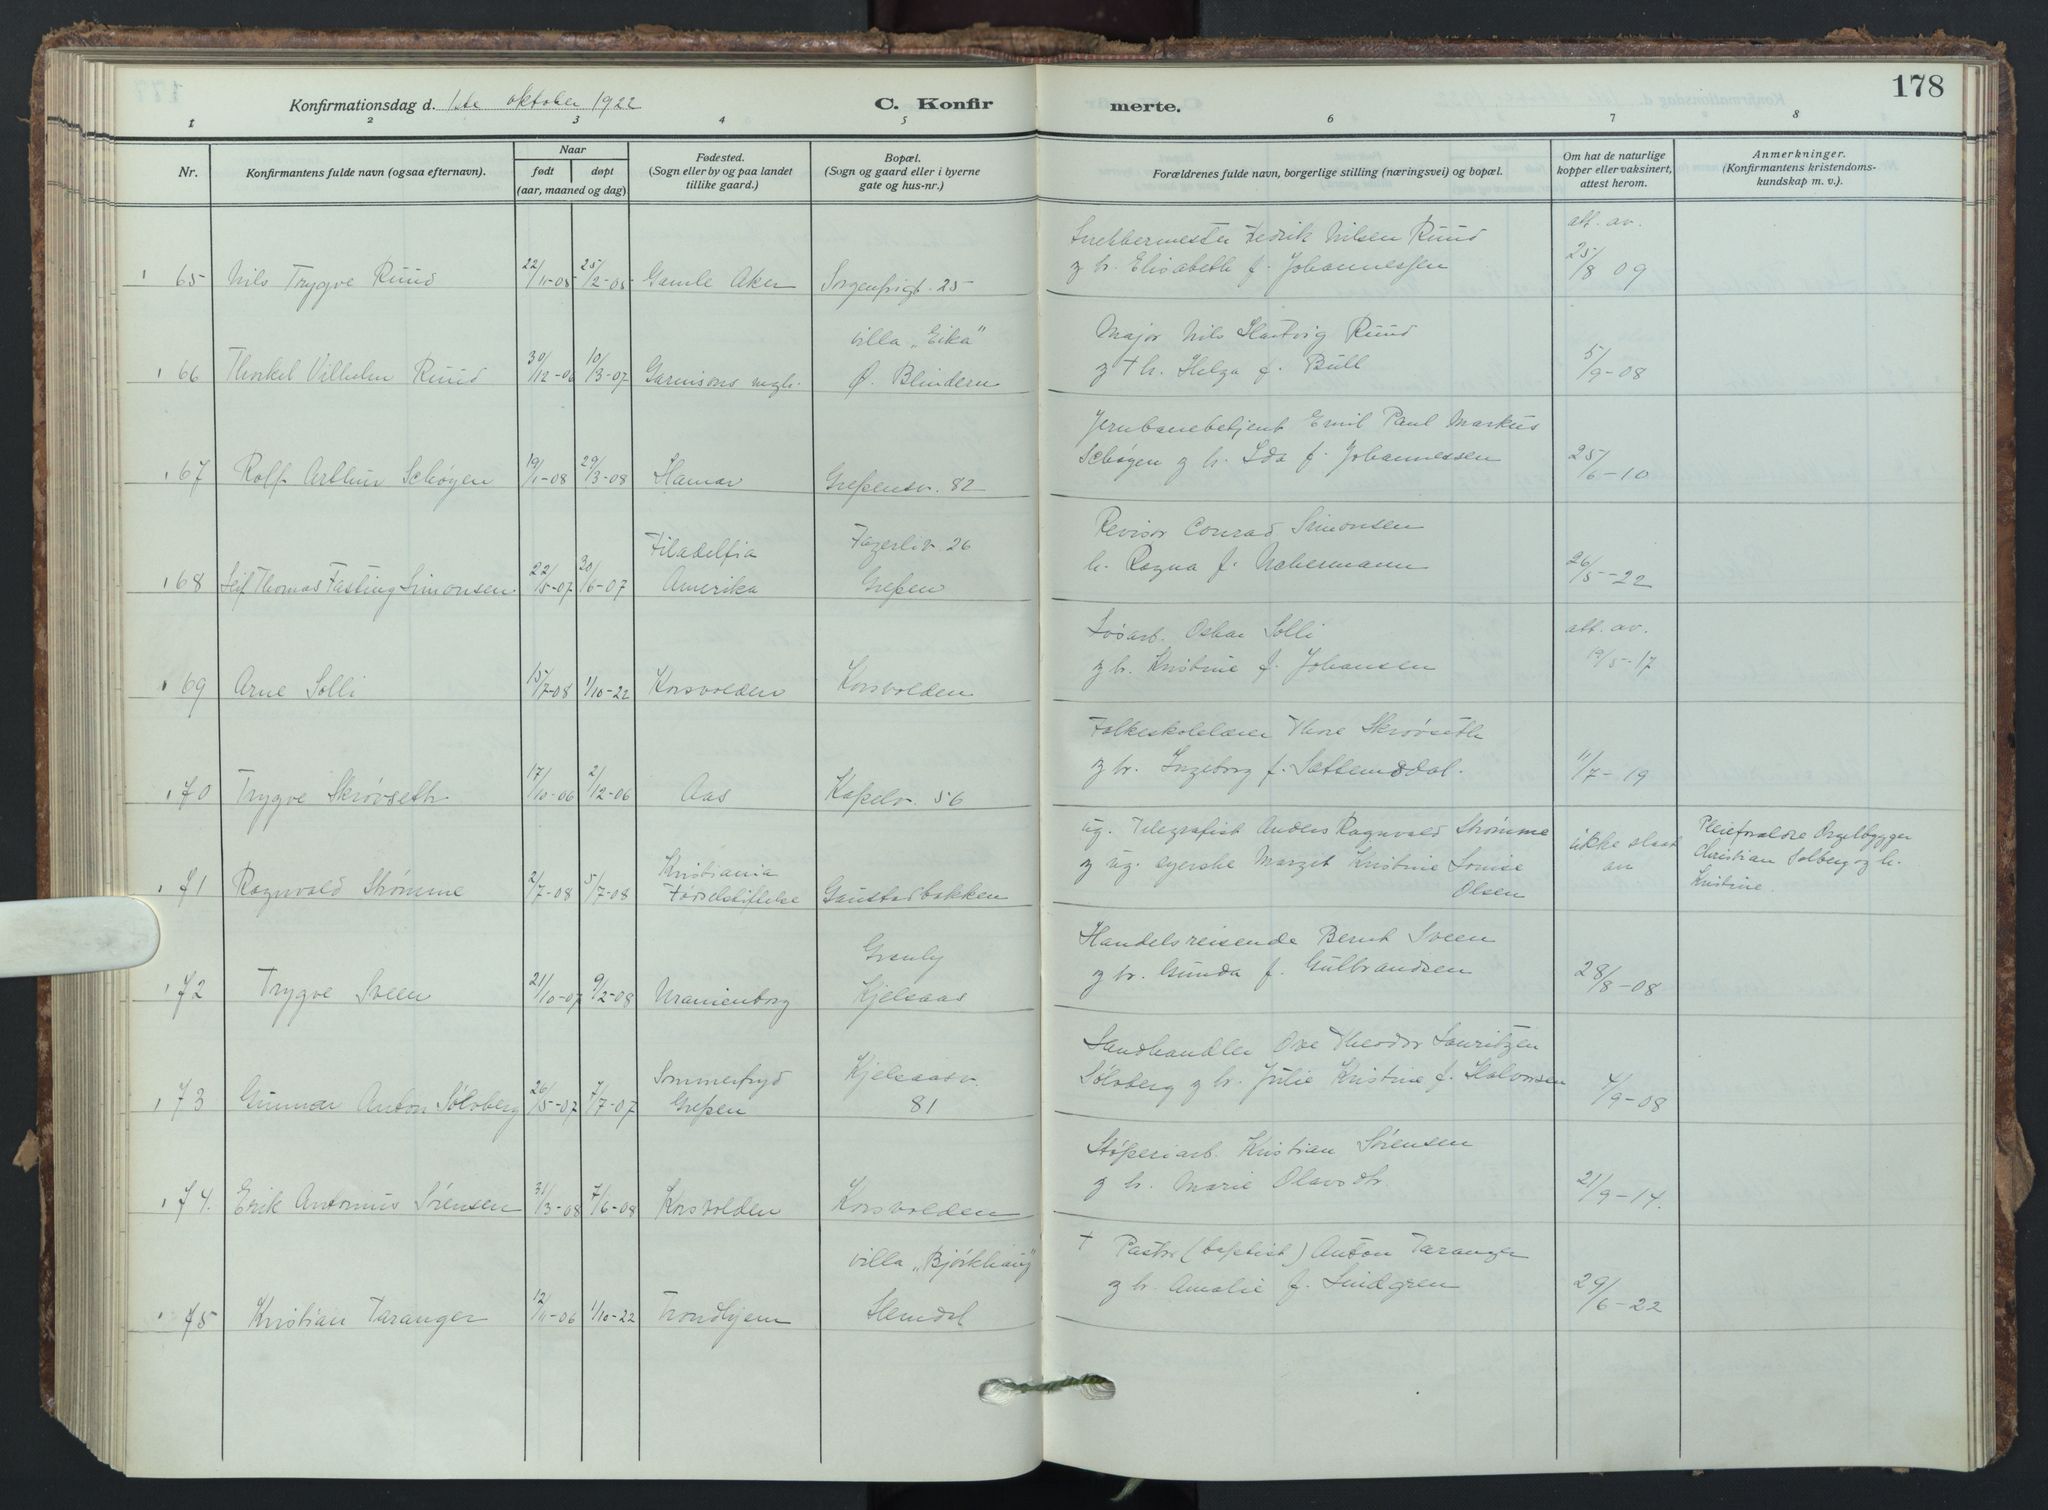 178
Konfirmationsdag d. 1ste oktober 1922
C. Konfir merte.
1 2 3 4 5 6 7 8
Nr.
Konfirmantens fulde navn (ogsaa efternavn).
Naar
født døpt
(aar, maaned og dag)
Fødested.
(Sogn eller by og paa landet
tillike gaard.)
Bopæl.
(Sogn og gaard eller i byerne
gate og hus-nr.)
Forældrenes fulde navn, borgerlige stilling (næringsvei) og bopæl.
Om hat de naturlige
kopper eller vaksinert,
attest herom.
Anmerkninger.
(Konfirmantens kristendoms-
kundskap m. v.).
Snekkermester Fedrik Nilsen Ruud att. av.
65 Nils Trygve Ruud 22/11-05 25/2-05 Gamle Aker Sorgenfrigt. 25 og h. Elisabeth f. Johannessen 25/8 09
villa „Eika” Major Nils Hartvig Ruud
66 Thorkel Vilhelm Ruud 30/12-06 10/3-07 Garnisons mgh. Ø. Blindern og † h. Helga f. Bull 5/9-08
Jernbanebetjent Emil Paul Markus
67 Rolf Arthur Schøyen 19/1-08 29/3-08 Hamar Grefsensv. 82 Schøyen og h. Ida f. Johannessen 25/6-10
Filadelfia Fagerliv. 26 Revisor Conrad Simonsen
68 Leif Thomas Fasting Simonsen 22/5-07 30/6-07 Amerika Grefsen h. Ragna f. 26/5-22
Løsarb. Oskar Solli att. av.
69 Arne Solli 15/7-08 1/10-22 Korsvolden Korsvolden og h. Kristine f. Johansen 19/5-17
Folkeskolelærer Thore Skrøvseth
70 Trygve Skrøvseth 17/10-06 2/12-06 Aas Kapelv. 56 og h. Ingeborg f. Settemsdal. 11/7-19
Kristiania ug. Telegrafist Anders Ragnvald Strømme ikke slaat Pleieforældre Orgelbygger
71 Ragnvald Strømme 2/7-08 5/7-08 Fødselsstiftelse Gaustadbakken og ug. syerske Margit Kristine Louise Olsen an Christian Solberg og h. Kristine.
Granly Handelsreisende Bernt Sveen
72 Trygve Sveen 21/10-07 9/2-08 Uranienborg Kjelsaas og h. Gunda f. Gulbrandsen 28/8-08
Sommerfryd Kjelsaasv. Sandhandler Ove Theodor Lauritzen
73 Gunnar Anton Sølvberg 26/5-07 7/7-07 Grefsen 81 Sølvberg og h. Julie Kristine f. Halvorsen 4/9-08
Støperiarb. Kristian Sørensen
74. Erik Antonius Sørensen 31/3-08 7/6-08 Korsvolden Korsvolden og h. Marie Olavsdtr. 21/9-14.
villa „Bjørkhaug” † Pastor (baptist) Anton Taranger
75 Kristian Taranger 12/11-06 1/10-22 Trondhjem Slemdal og h. Amalie f. Lindgren 29/6-22